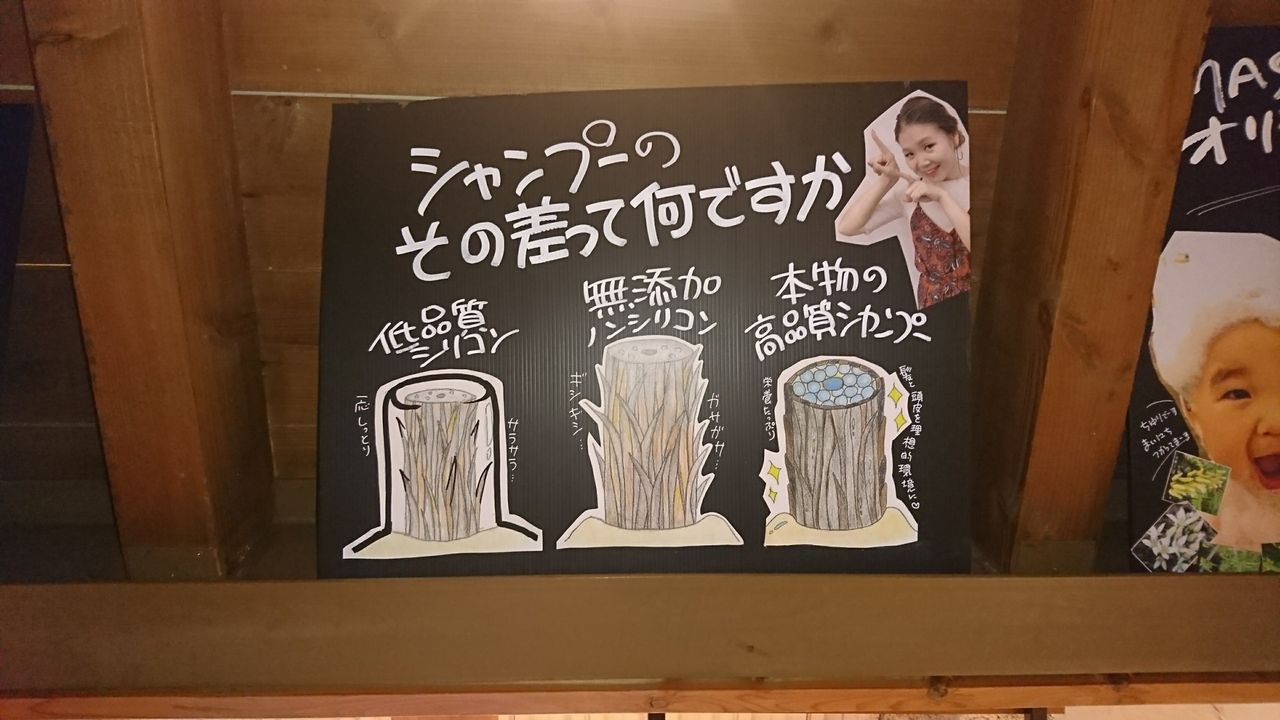 シャンプーの
その差って何ですか
低品質
シリコン
一応しっとり
サラサラ…
無添加
ノンシリコン
ギシギシ…
ガサガサ…
本物の
高品質シャンプー
栄養たっぷり
髪と頭皮を理想的環境に♡
オリ
ちゅりでーす
まいにち
つかってまーす